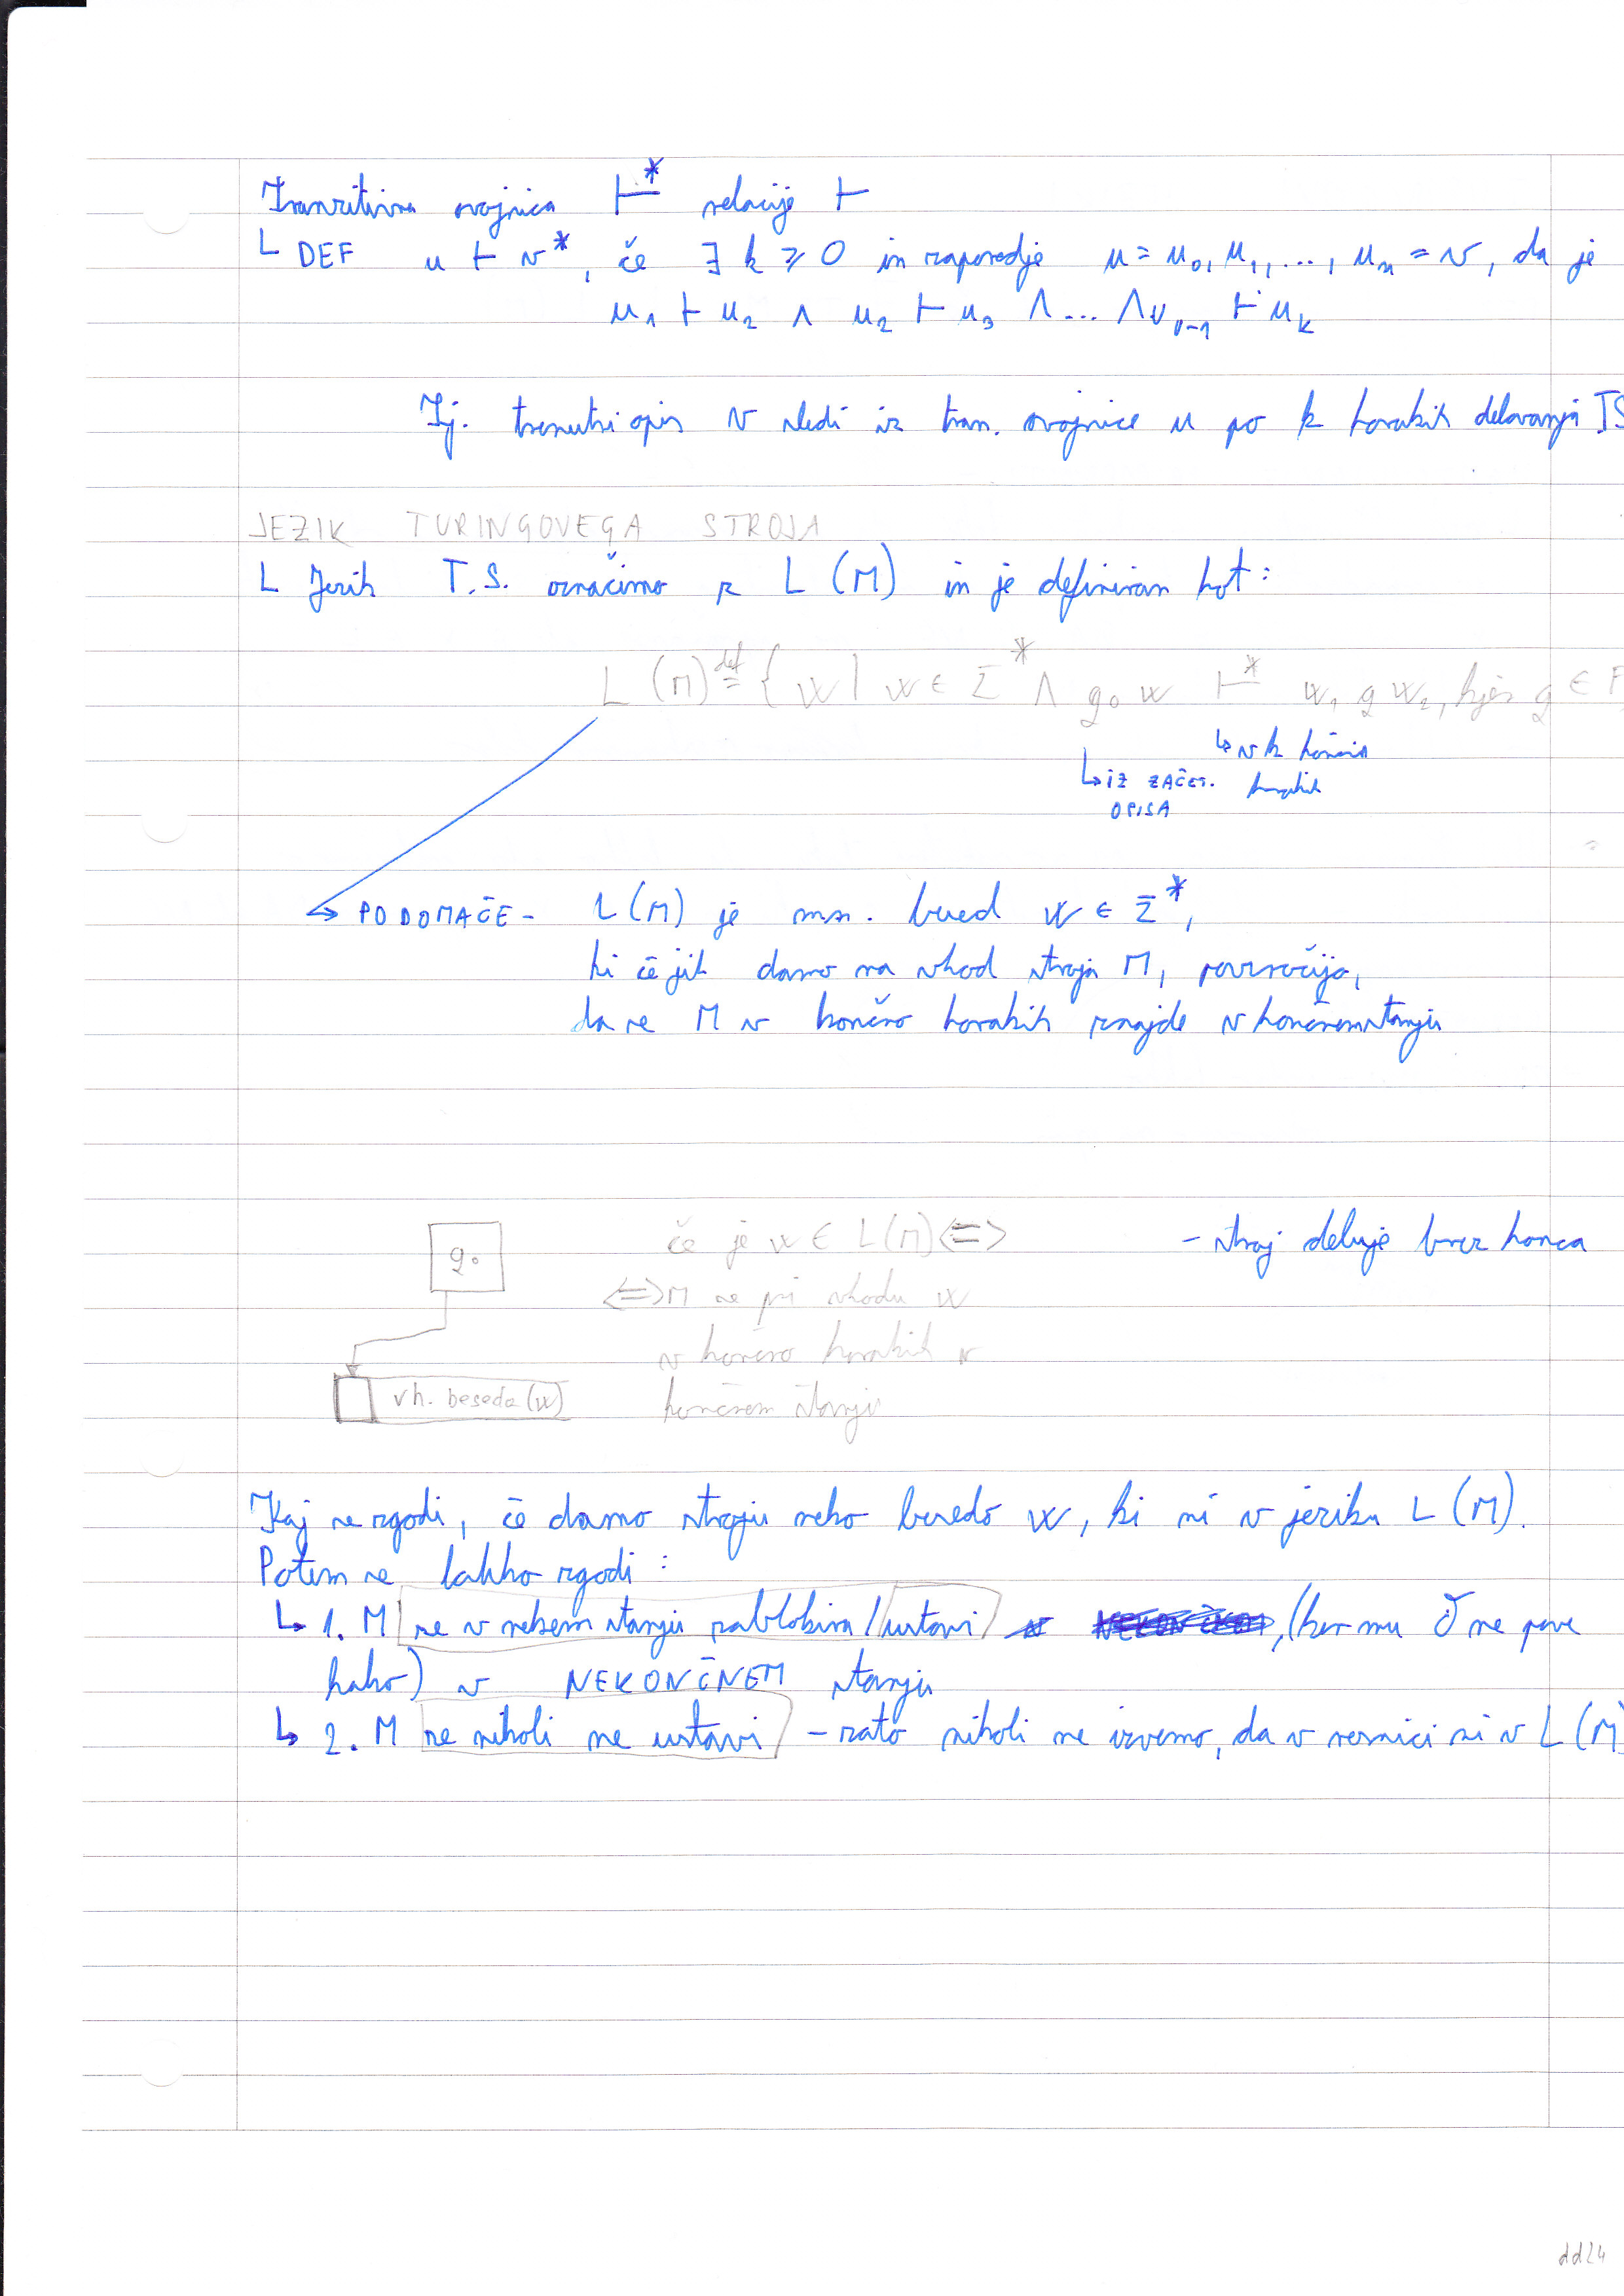 Tranzitivna ovojnica ⊢* relacije ⊢
DEF u ⊢ v*, če ∃ k ≥ 0 in zaporedje u = u₀, u₁, ..., uₙ = v, da je
u₁ ⊢ u₂ ∧ u₂ ⊢ u₃ ∧ ... ∧ ⊢ uₖ
Tj. trenutni opis v sledi iz tran. ovojnice u po k korakih delovanja TS
JEZIK TURINGOVEGA STROJA
Jezik T.S. označimo z L(M) in je definiran kot:
L(M) def= { w | w ∈ Σ* ∧ q₀w ⊢* w₁ q w₂, kjer q ∈ F
↳ v k končnih
↳ IZ ZAČET. korakih
OPISA
→ PO DOMAČE - L(M) je mn. besed w ∈ Σ*,
ki če jih damo na vhod stroja M, povzročijo,
da se M v končno korakih znajde v končnem stanju
q₀ če je w ∈ L(M) <=> - stroj deluje brez konca
<=> M se pri vhodu w
v končno korakih v
vh. beseda (w) končnem stanju
Kaj se zgodi, če damo stroju neko besedo w, ki ni v jeziku L(M).
Potem se lahko zgodi:
↳ 1. M se v nekem stanju zablokira / ustavi, (ker mu δ ne pove
kako) v NEKONČNEM stanju
↳ 2. M se nikoli ne ustavi - zato nikoli ne izvemo, da v resnici ni v L(M)
dd24